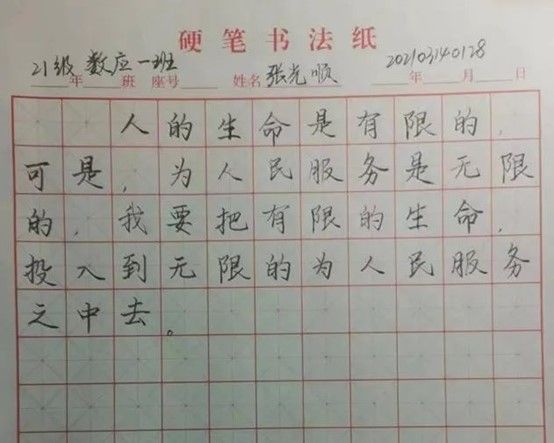 硬笔书法纸
21级 数应一班 年 班 座号 姓名 张光顺 202103140128 年 月 日
人的生命是有限的,
可是,为人民服务是无限
的,我要把有限的生命,
投入到无限的为人民服务
之中去。